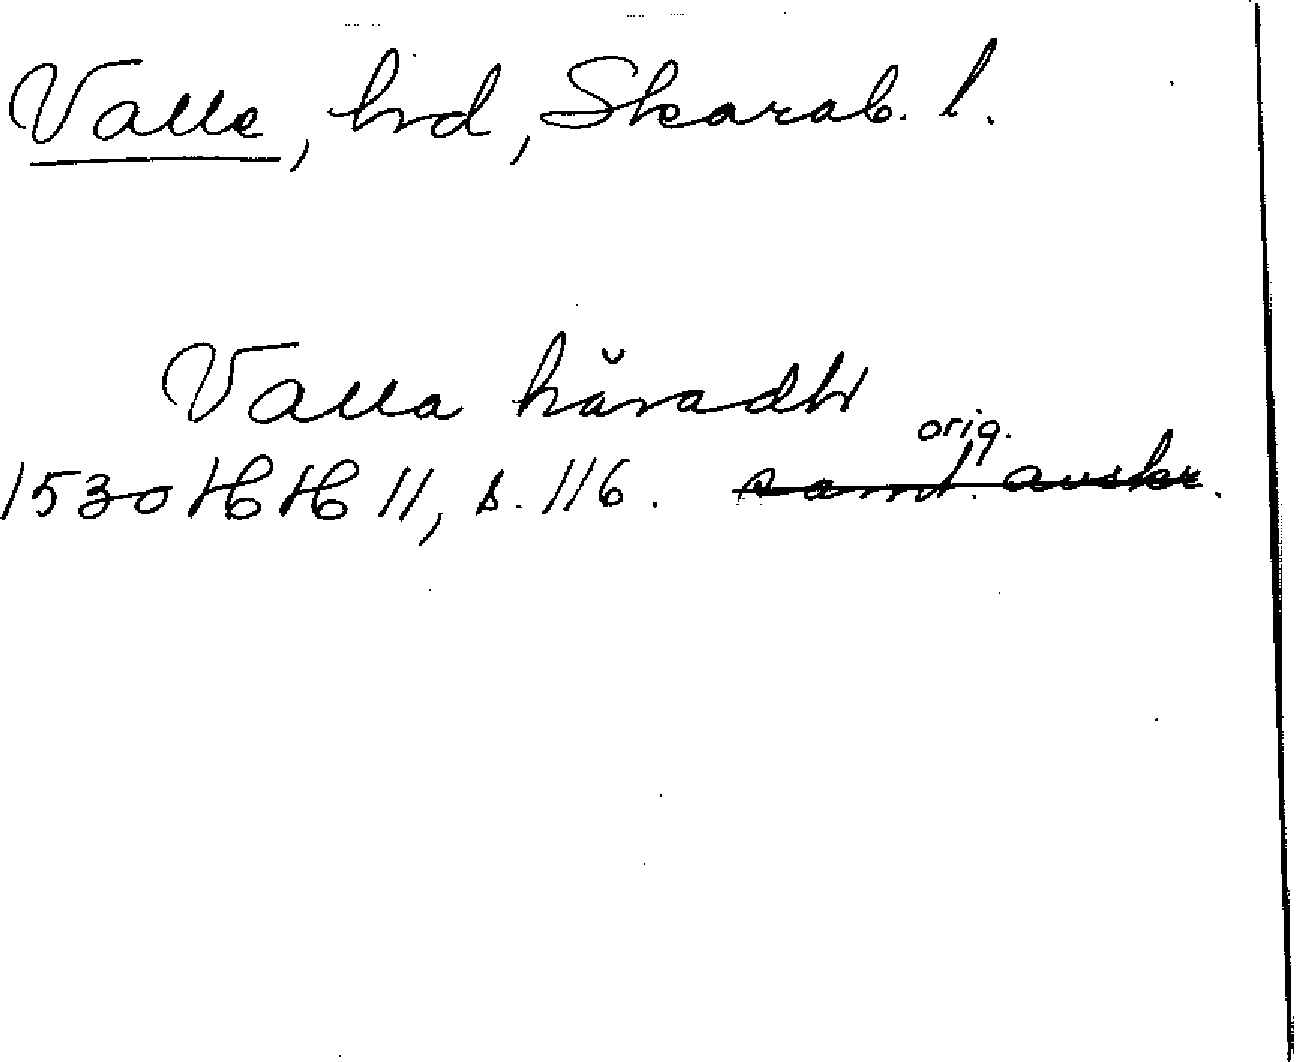 Valle, hrd, Skarab. l.
Valla håradh
orig.
1530 HH 11, s. 116. samt. avskr.